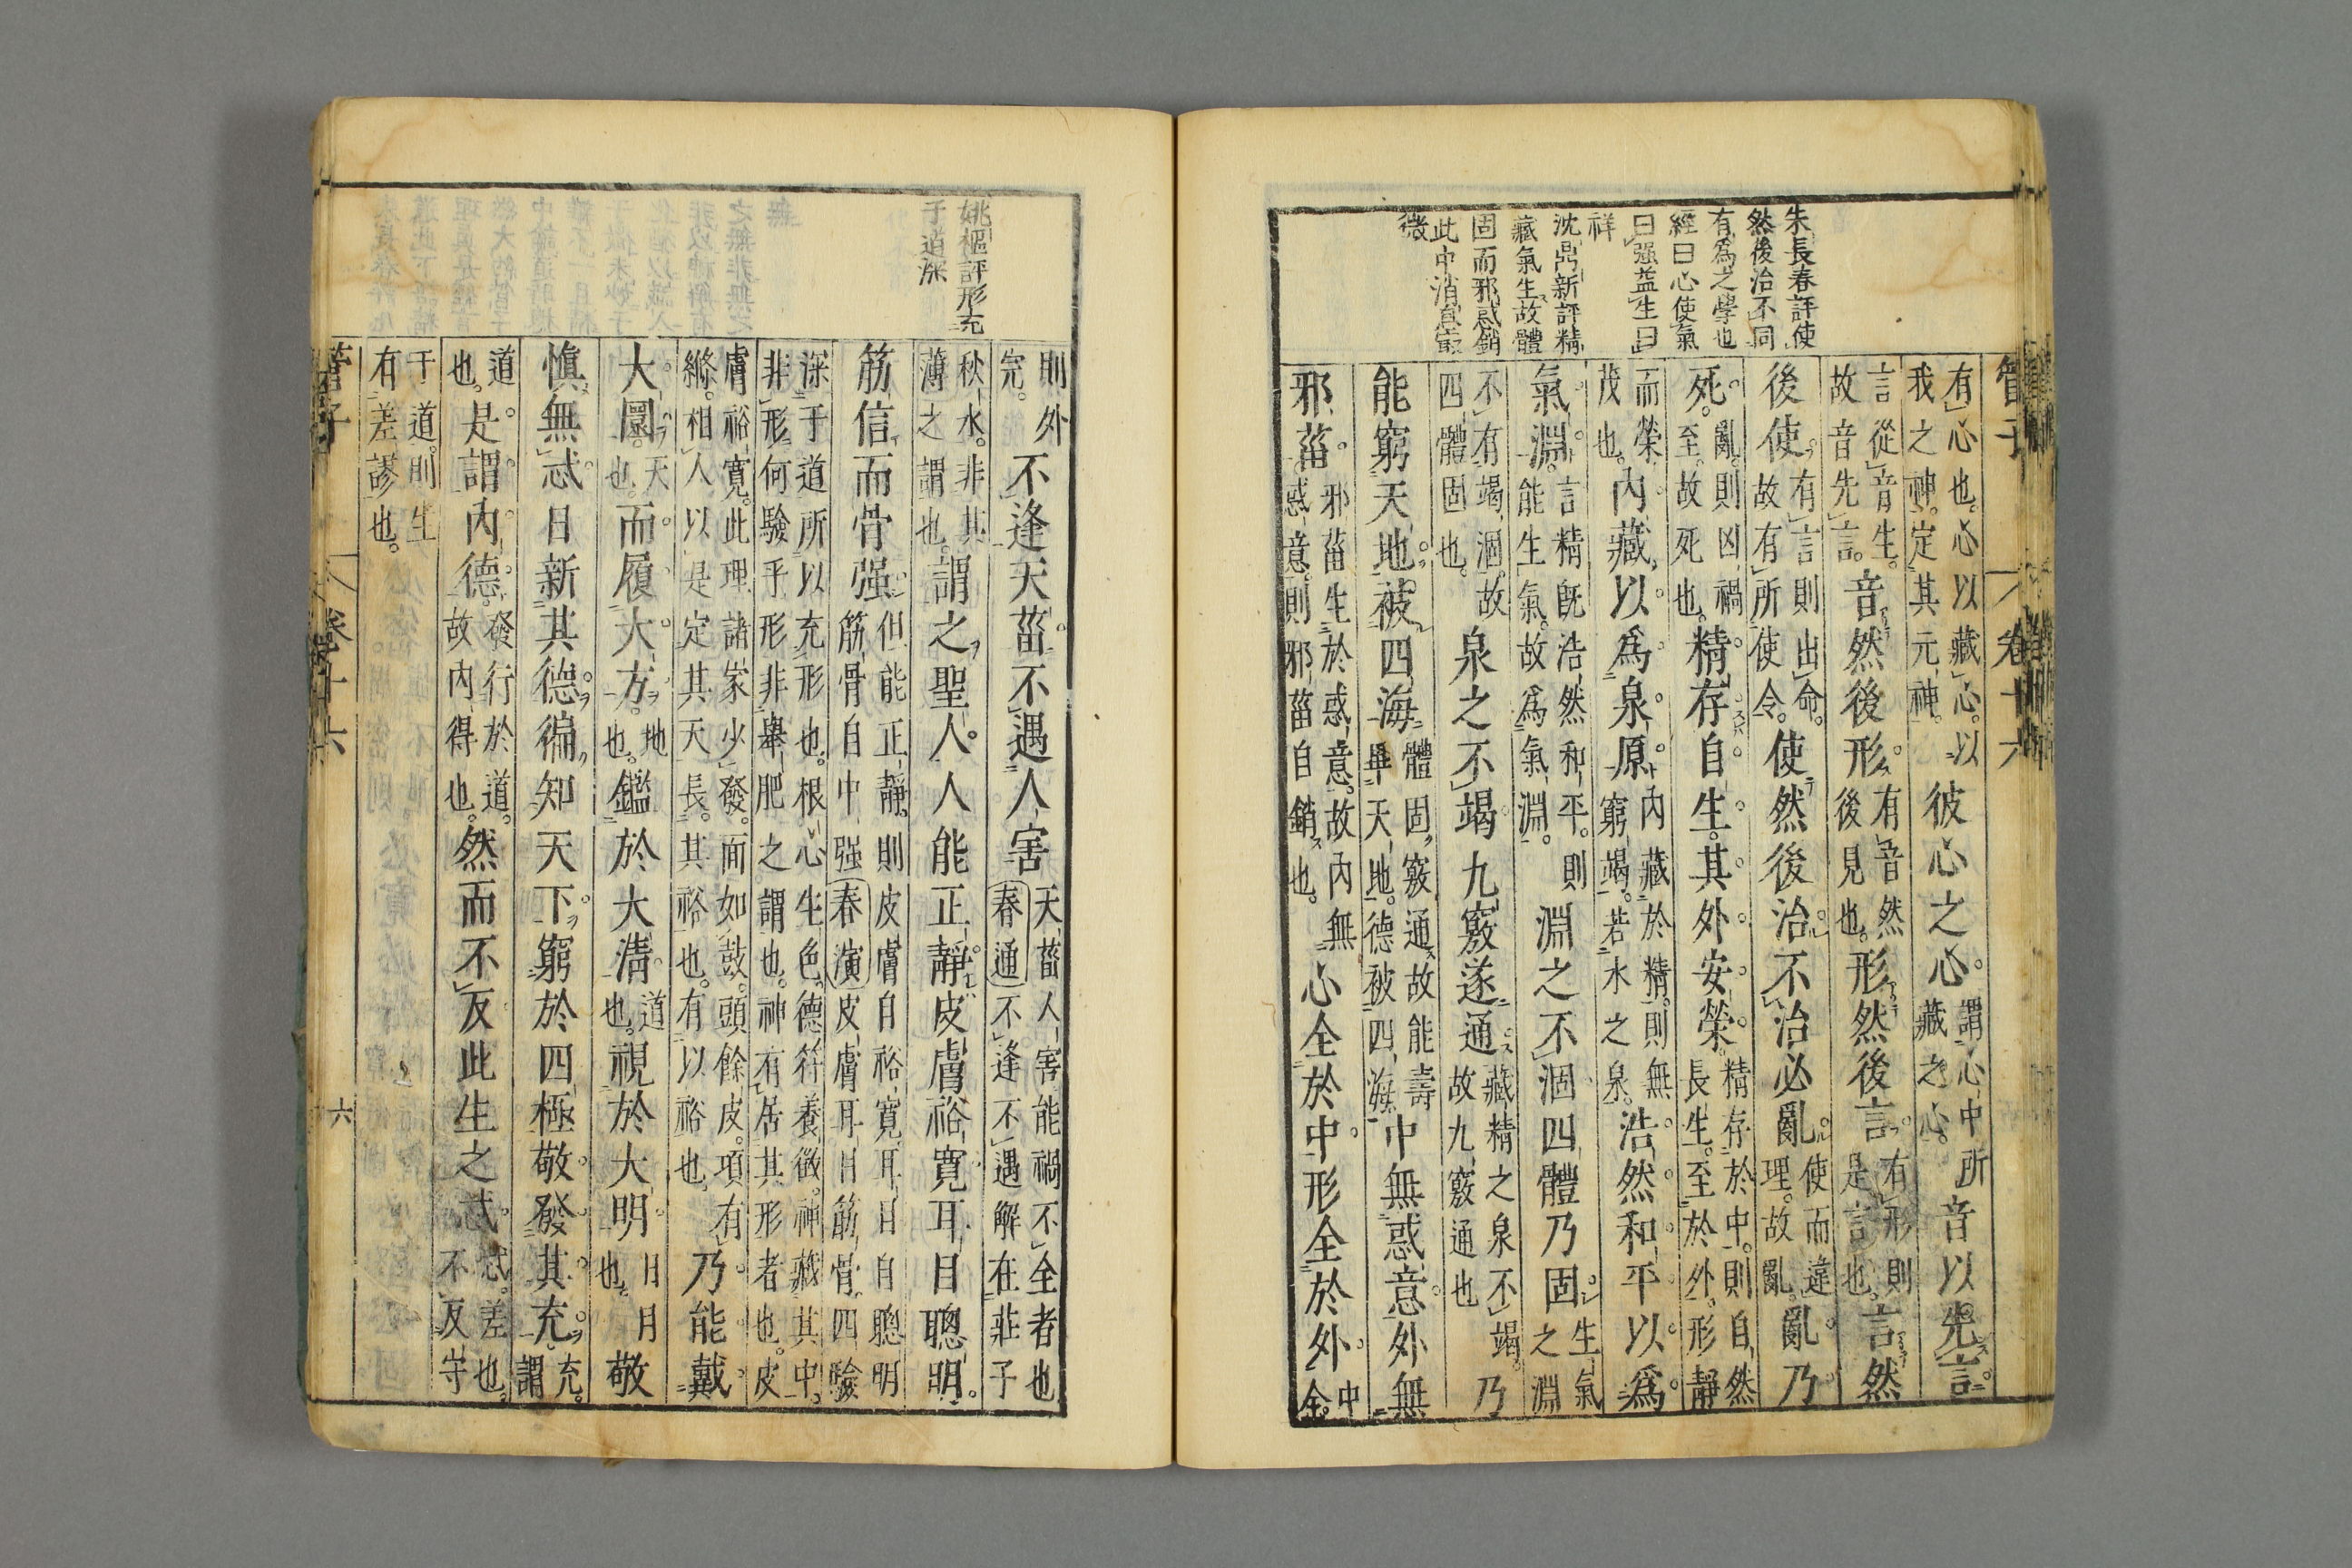 管子
卷十六
朱長春評使
然後治不同
有爲之學也
經曰心使氣
曰强益生曰
祥
沈鼎新評精
藏氣生故體
固而邪惑銷
此中消息最
微
有心也心以藏心以彼心之心謂心中所音以先言
我之神定其元神藏之心
言從音生音然後形有音然形然後言有形則言然
故音先言後見也是言也
後使有言則出命使然後治不治必亂使而違亂乃
故有所使令理故亂
死亂則凶禍精存自生其外安榮精存於中則自然
至故死也長生至於外形靜
而榮內藏以爲泉原內藏於精則無浩然和平以爲
茂也窮竭若水之泉
氣淵言精旣浩然和平則淵之不涸四體乃固生氣
能生氣故爲氣淵之淵
不有竭涸故泉之不竭九竅遂通藏精之泉不竭乃
四體固也故九竅通也
能窮天地被四海體固竅通故能壽中無惑意外無
畢天地德被四海
邪菑邪菑生於惑意故內無心全於中形全於外中
惑意則邪菑自銷也全
姚樞評形充
于道深
則外不逢天菑不遇人害天菑人害能禍不全者也
完春通不逢不遇解在莊子
秋水非其謂之聖人人能正靜皮膚裕寬耳目聰明
薄之謂也
筋信而骨强但能正靜則皮膚自裕寬耳目自聰明
筋骨自中强春演皮膚耳目筋骨四驗
深于道所以充形也根心生色德符養徵神藏其中
非形何驗乎形非舉肥之謂也神有居其形者也皮
膚裕寬此理諸家少發而如鼓頭餘皮項有乃能戴
縧相人以是定其天長其裕也有以裕也
大圜天而履大方地鑑於大淸道視於大明日月敬
也也也也
愼無忒日新其德徧知天下窮於四極敬發其充充
謂
道是謂內德發行於道然而不反此生之忒忒差也
也故內得也不反守
于道則生
有差謬也
管子
卷十六
六